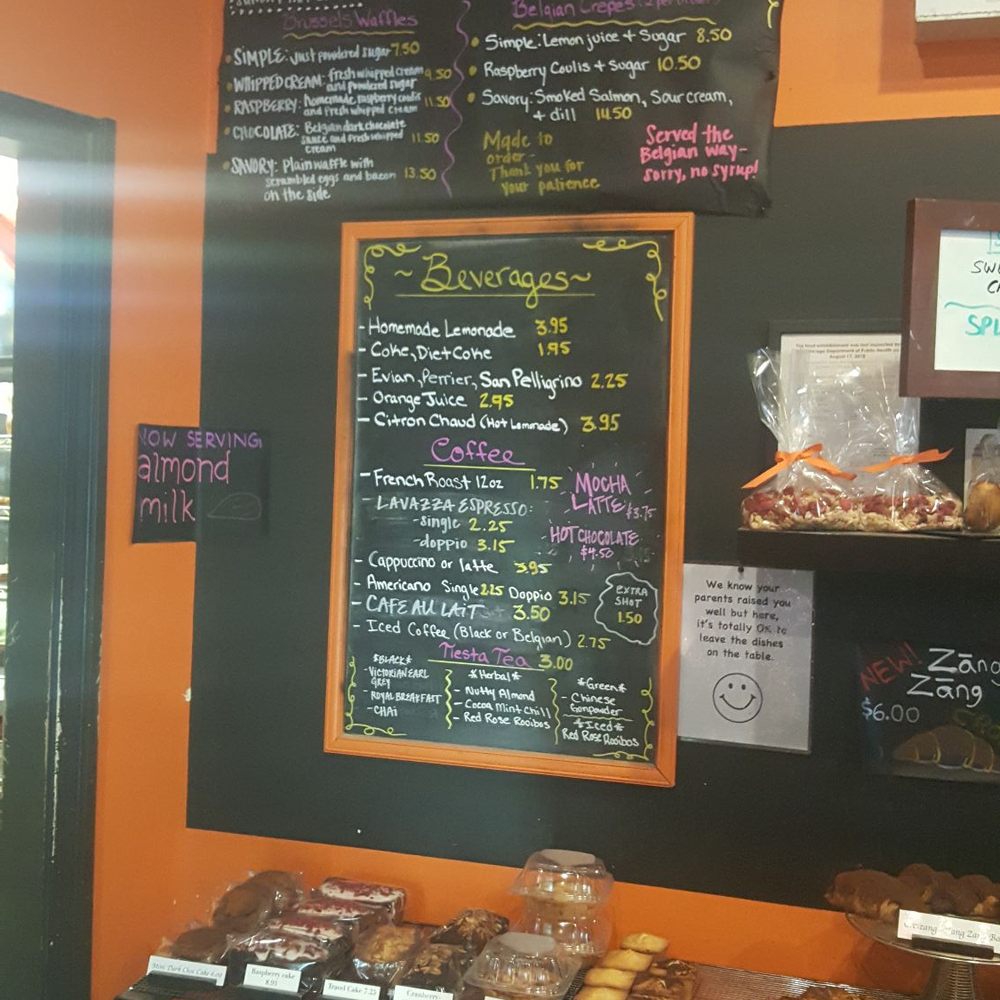 Brussels Waffles
• SIMPLE: Just powdered sugar 7.50
• WHIPPED CREAM: fresh whipped cream 9.50
and powdered sugar
• RASPBERRY: homemade raspberry coulis 11.50
and fresh whipped cream
• CHOCOLATE: Belgian dark chocolate
sauce and fresh whipped 11.50
cream
• SAVORY: Plain waffle with
scrambled eggs and bacon 13.50
on the side
Belgian Crepes:
• Simple: Lemon juice + Sugar 8.50
• Raspberry Coulis + Sugar 10.50
• Savory: Smoked Salmon, Sour cream,
+ dill 14.50
Made to
order -
Thank you for
your patience
Served the
Belgian way -
sorry, no syrup!
~ Beverages ~
- Homemade Lemonade 3.95
- Coke, Diet Coke 1.95
- Evian, Perrier, San Pelligrino 2.25
- Orange Juice 2.95
- Citron Chaud (Hot Lemonade) 3.95
Coffee
- French Roast 12oz 1.75
- LAVAZZA ESPRESSO:
- single 2.25
- doppio 3.15
MOCHA
LATTE $3.75
HOT CHOCOLATE
$4.50
- Cappuccino or latte 3.95
- Americano Single 2.25 Doppio 3.15
- CAFE AU LAIT 3.50
- Iced Coffee (Black or Belgian) 2.75
EXTRA
SHOT
1.50
Tiesta Tea 3.00
*BLACK*
- VICTORIAN EARL
GREY
- ROYAL BREAKFAST
- CHAI
*Herbal*
- Nutty Almond
- Cocoa Mint Chill
- Red Rose Rooibos
*Green*
- Chinese
Gunpowder
*Iced*
Red Rose Rooibos
NOW SERVING:
almond
milk
We know your
parents raised you
well but here,
it's totally OK to
leave the dishes
on the table.
NEW!
Zāng
Zāng
$6.00
August 17, 2018
SPL
Raspberry cake
8.95
Travel Cake 7.25
Cranberry